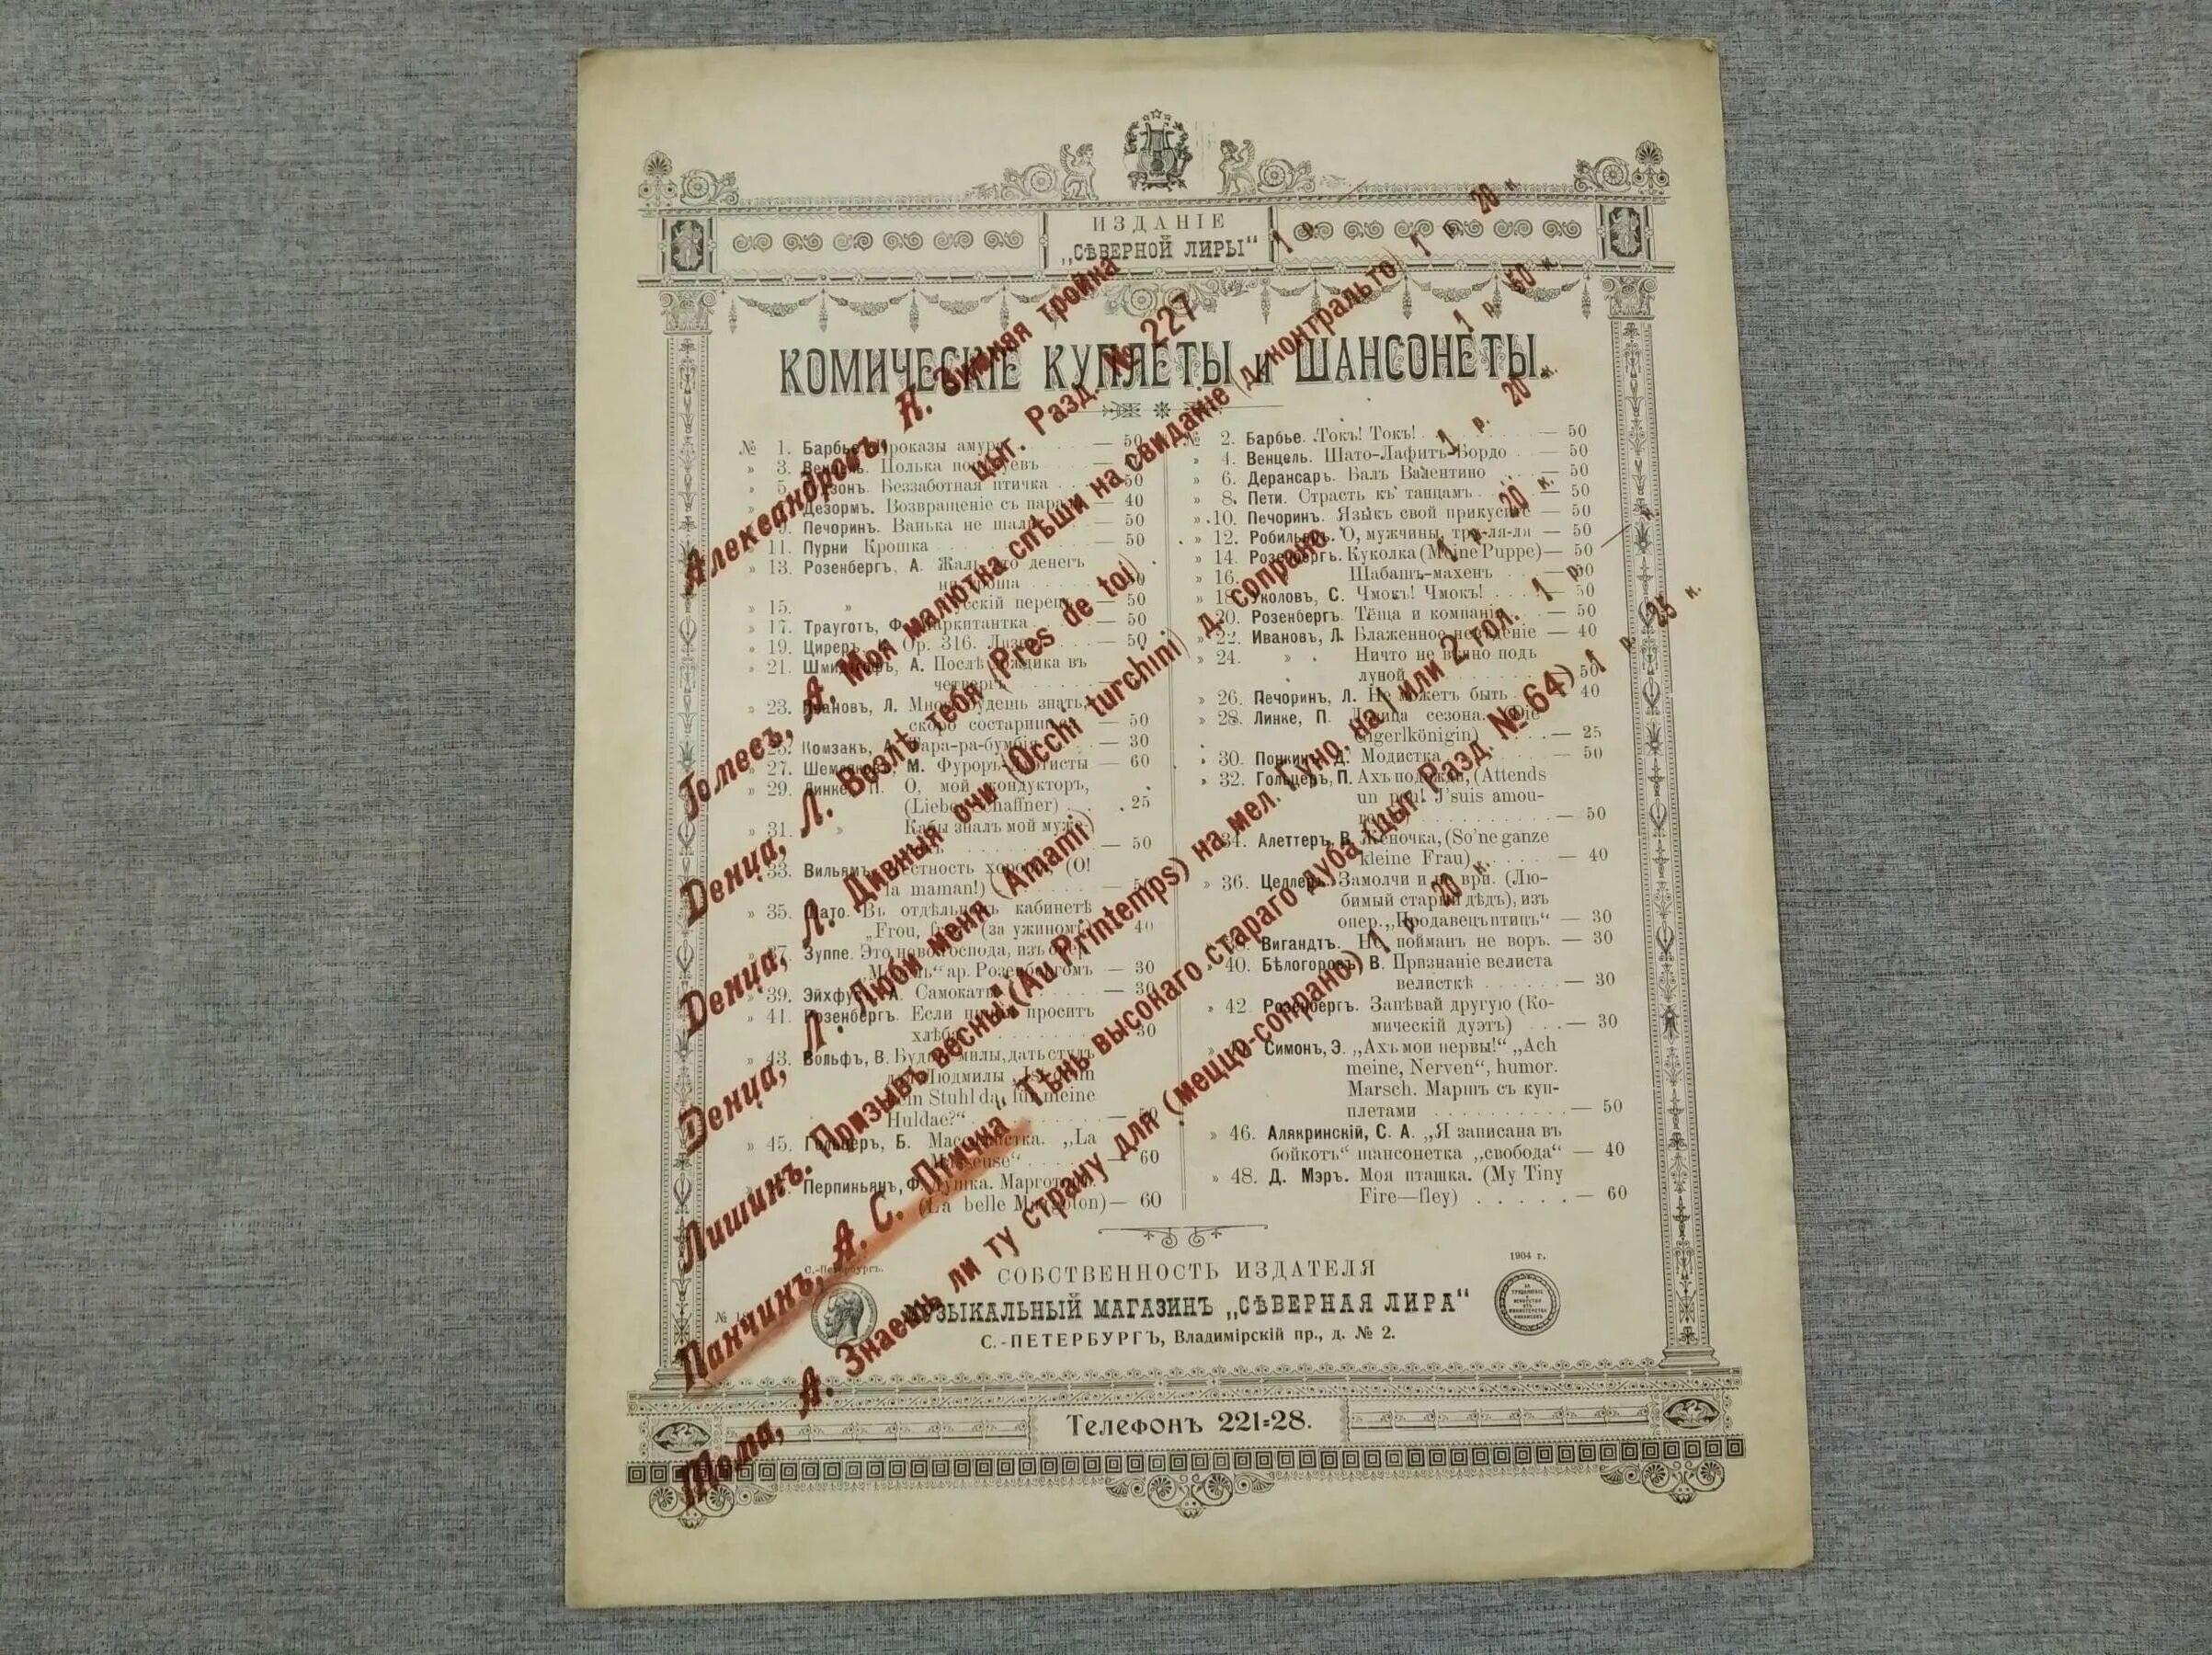 ИЗДАНІЕ
„СѢВЕРНОЙ ЛИРЫ“
КОМИЧЕСКІЕ КУПЛЕТЫ и ШАНСОНЕТЫ.
№ 1. Барбье. Проказы амура — 50
» 3. Венцель. Полька поцѣлуевъ —
» 5. Беззаботная птичка 50
Дезормъ. Возвращеніе съ парада — 40
9. Печоринъ. Ванька не шали — 50
11. Пурни Крошка — 50
» 13. Розенбергъ, А. Жаль что денегъ
ни гроша 50
» 15. » перецъ — 50
» 17. Трауготъ, Ф. Маркитантка — 50
» 19. Цирер Ор. 316. — 50
» 21. А. Послѣ дождика въ
четвергъ —
» 23. Ивановъ, Л. Много будешь знать,
скоро состаришься — 50
» 25. Комзакъ, Тара-ра-бумбія — 30
» 27. М. Фуроръ — 60
» 29. Линке, П. О, мой кондукторъ,
(Lieber Schaffner) 25
» 31. » Кабы зналъ мой муже-
— 50
33. Вильямъ. хороша (O!
la maman!) — 50
» 35. Шато. Въ отдѣльномъ кабинетѣ
„Frou, frou“ (за ужиномъ) 40
37. Зуппе. Это ново господа, изъ опер.
ар. Розенбергомъ — 30
» 39. А. Самокаты — 30
» 41. Розенбергъ. Если просить
хлѣба 30
» 43. Вольфъ, В. Будьте милы, дать стулъ
для Людмилы
ein Stuhl da, für meine
Huldae?“ — 50
» 45. Гольцеръ, Б. „La
Masseuse“ — 60
Перпиньянъ, Ф. Марготонъ.
(La belle Margoton) — 60
№ 2. Барбье. Токъ! Токъ! — 50
» 4. Венцель. Шато-Лафитъ-Бордо — 50
» 6. Дерансаръ. Балъ Валентино — 50
» 8. Пети. Страсть къ танцамъ — 50
» 10. Печоринъ. Языкъ свой прикусите — 50
» 12. Робильяръ. О, мужчины, тра-ля-ля — 50
» 14. Розенбергъ. Куколка (Meine Puppe) — 50
» 16. Шабашъ-махенъ 50
» 18. Уколовъ, С. Чмокъ! Чмокъ! — 50
20. Розенбергъ. Тёща и компанія — 50
» 22. Ивановъ, Л. Блаженное невѣдѣніе — 40
» 24. » Ничто не вѣчно подъ
луной 50
» 26. Печоринъ, Л. Не можетъ быть 40
» 28. Линке, П. Львица сезона. (Die
Gigerlkönigin) — 25
30. Понкинъ, Д. Модистка — 50
» 32. Гольцеръ, П. Ахъ подожди, (Attends
un peu! J'suis amou-
— 50
34. Алеттеръ, В. Женочка, (So'ne ganze
kleine Frau) — 40
» 36. Целлеръ. Замолчи и не ври. (Лю-
бимый старый дѣдъ), изъ
опер. „Продавецъ птицъ“ — 30
38. Вигандтъ. Не пойманъ не воръ. — 30
40. Бѣлогоровъ, В. Признаніе велиста
велисткѣ — 30
» 42. Розенбергъ. Запѣвай другую (Ко-
мическій дуэтъ) — 30
Симонъ, Э. „Ахъ мои нервы!“ „Ach
meine, Nerven“, humor.
Marsch. Маршъ съ куп-
летами — 50
» 46. Алякринскій, С. А. „Я записана въ
бойкотъ“ шансонетка „свобода“ — 40
» 48. Д. Мэръ. Моя пташка. (My Tiny
Fire—fley) — 60
Александровъ, А. тройка
цыг. Разд. № 227 1 р. —
Гомесъ, А. Моя малютка спѣши на свиданіе (д. контральто) 1 р. 20 к.
Денца, Л. Возлѣ тебя (Pres de toi) 1 р. 50 к.
Денца, Л. Дивныя очи (Occhi turchini) д. сопрано 1 р. 20 к.
Денца, Л. Люби меня (Amami) 1 р. 20 к.
Лишинъ. Призывъ весны (Au Printemps) на мел. Гуно, на 1 или 2 гол. 1 р. —
Панчинъ, А. С. Птичка „Тѣнь высокаго стараго дуба“ (цыг. Разд. № 64) 1 р. 25 к.
Тома, А. Знаешь ли ту страну для (меццо-сопрано) 1 р. 20 к.
С.-Петербургъ.
1904 г.
СОБСТВЕННОСТЬ ИЗДАТЕЛЯ
МУЗЫКАЛЬНЫЙ МАГАЗИНЪ „СѢВЕРНАЯ ЛИРА“
С.-ПЕТЕРБУРГЪ, Владимірскій пр., д. № 2.
Телефонъ 221=28.